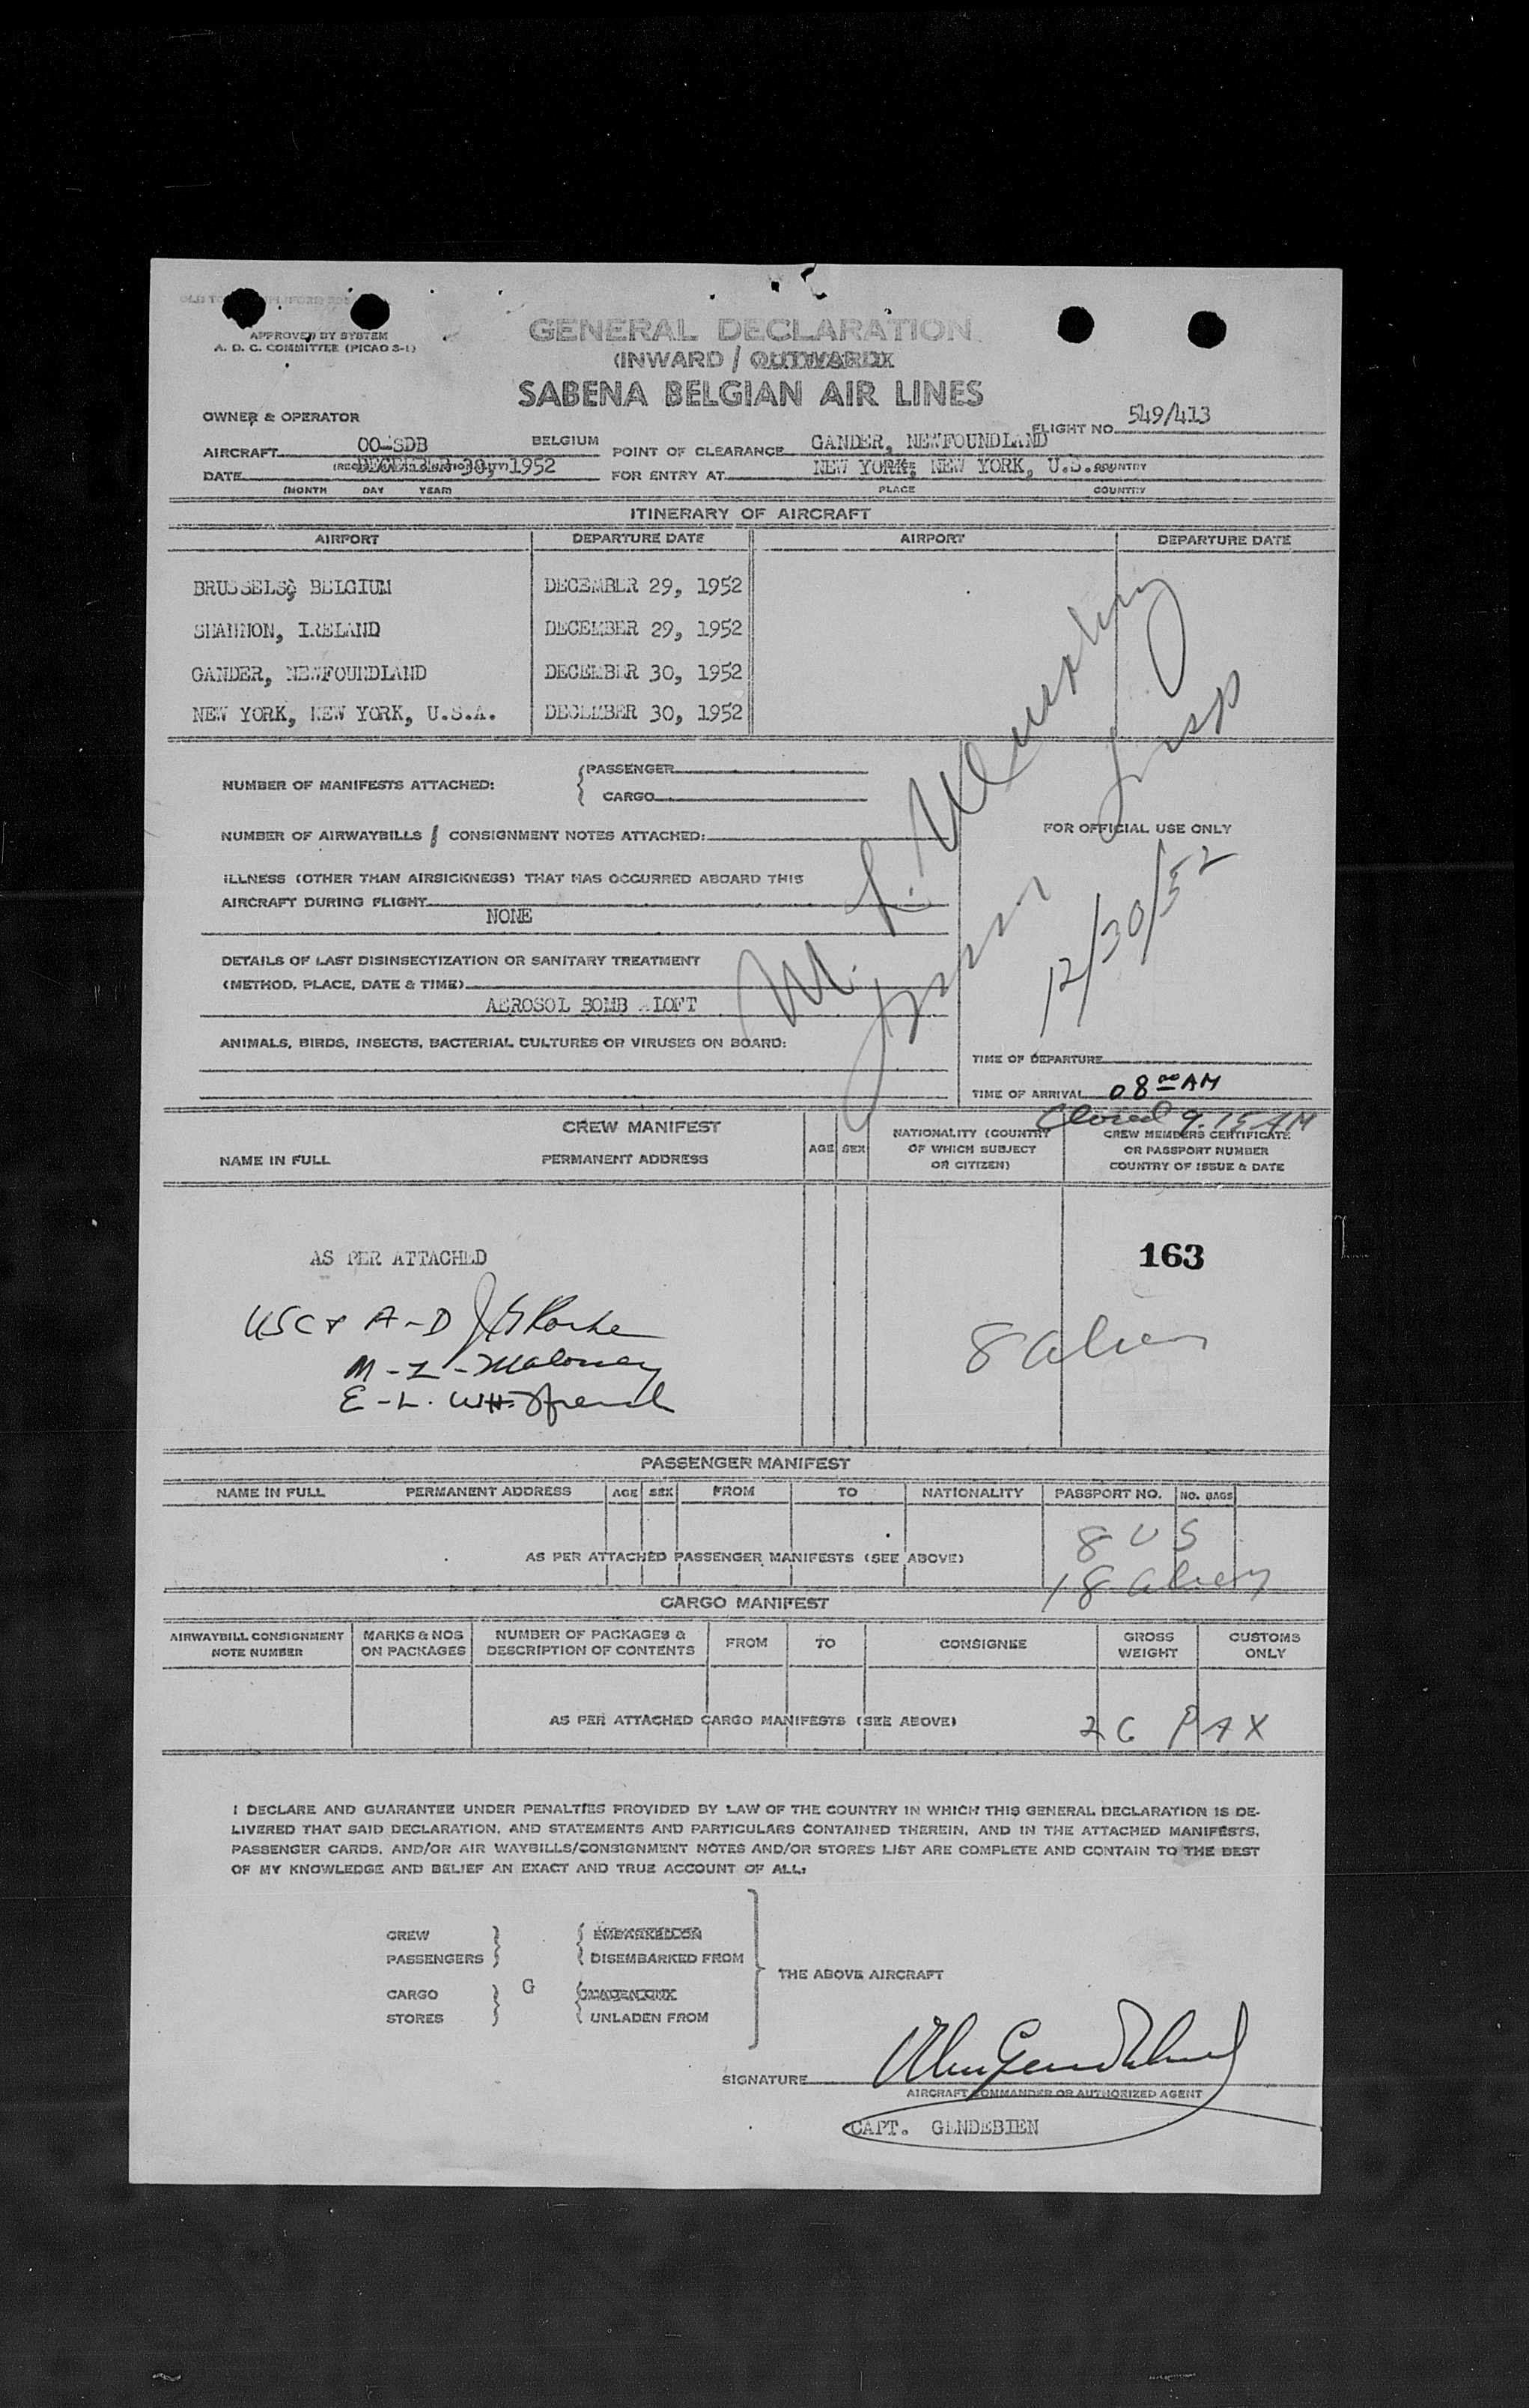 APPROVED BY SYSTEM
A. D. C. COMMITTEE (PICAO S-1)
GENERAL DECLARATION
(INWARD / OUTWARD)
SABENA BELGIAN AIR LINES
OWNER & OPERATOR
FLIGHT NO. 549/413
AIRCRAFT OO-SDB BELGIUM POINT OF CLEARANCE GANDER, NEWFOUNDLAND
DATE DECEMBER 30, 1952 FOR ENTRY AT NEW YORK, NEW YORK, U.S. COUNTRY
(MONTH DAY YEAR) PLACE COUNTRY
ITINERARY OF AIRCRAFT
AIRPORT DEPARTURE DATE AIRPORT DEPARTURE DATE
BRUSSELS, BELGIUM DECEMBER 29, 1952
SHANNON, IRELAND DECEMBER 29, 1952
GANDER, NEWFOUNDLAND DECEMBER 30, 1952
NEW YORK, NEW YORK, U.S.A. DECEMBER 30, 1952
NUMBER OF MANIFESTS ATTACHED: PASSENGER
CARGO
NUMBER OF AIRWAYBILLS / CONSIGNMENT NOTES ATTACHED:
FOR OFFICIAL USE ONLY
12/30/52
ILLNESS (OTHER THAN AIRSICKNESS) THAT HAS OCCURRED ABOARD THIS
AIRCRAFT DURING FLIGHT
NONE
DETAILS OF LAST DISINSECTIZATION OR SANITARY TREATMENT
(METHOD, PLACE, DATE & TIME)
AEROSOL BOMB ALOFT
ANIMALS, BIRDS, INSECTS, BACTERIAL CULTURES OR VIRUSES ON BOARD:
TIME OF DEPARTURE
TIME OF ARRIVAL 08 00 AM
Closed 9.15 AM
CREW MANIFEST
NAME IN FULL PERMANENT ADDRESS AGE SEX NATIONALITY (COUNTRY OF WHICH SUBJECT OR CITIZEN) CREW MEMBERS CERTIFICATE OR PASSPORT NUMBER COUNTRY OF ISSUE & DATE
AS PER ATTACHED
163
USC & A-D
M-Z - Maloney
E-L. W.H. French
8 alien
PASSENGER MANIFEST
NAME IN FULL PERMANENT ADDRESS AGE SEX FROM TO NATIONALITY PASSPORT NO. NO. BAGS
8 US
AS PER ATTACHED PASSENGER MANIFESTS (SEE ABOVE)
18 alien
CARGO MANIFEST
AIRWAYBILL CONSIGNMENT NOTE NUMBER MARKS & NOS ON PACKAGES NUMBER OF PACKAGES & DESCRIPTION OF CONTENTS FROM TO CONSIGNEE GROSS WEIGHT CUSTOMS ONLY
AS PER ATTACHED CARGO MANIFESTS (SEE ABOVE)
26 PAX
I DECLARE AND GUARANTEE UNDER PENALTIES PROVIDED BY LAW OF THE COUNTRY IN WHICH THIS GENERAL DECLARATION IS DE-
LIVERED THAT SAID DECLARATION, AND STATEMENTS AND PARTICULARS CONTAINED THEREIN, AND IN THE ATTACHED MANIFESTS,
PASSENGER CARDS, AND/OR AIR WAYBILLS/CONSIGNMENT NOTES AND/OR STORES LIST ARE COMPLETE AND CONTAIN TO THE BEST
OF MY KNOWLEDGE AND BELIEF AN EXACT AND TRUE ACCOUNT OF ALL:
CREW EMBARKED ON
PASSENGERS DISEMBARKED FROM
THE ABOVE AIRCRAFT
CARGO G
STORES UNLADEN FROM
SIGNATURE
AIRCRAFT COMMANDER OR AUTHORIZED AGENT
CAPT. GENDEBIEN